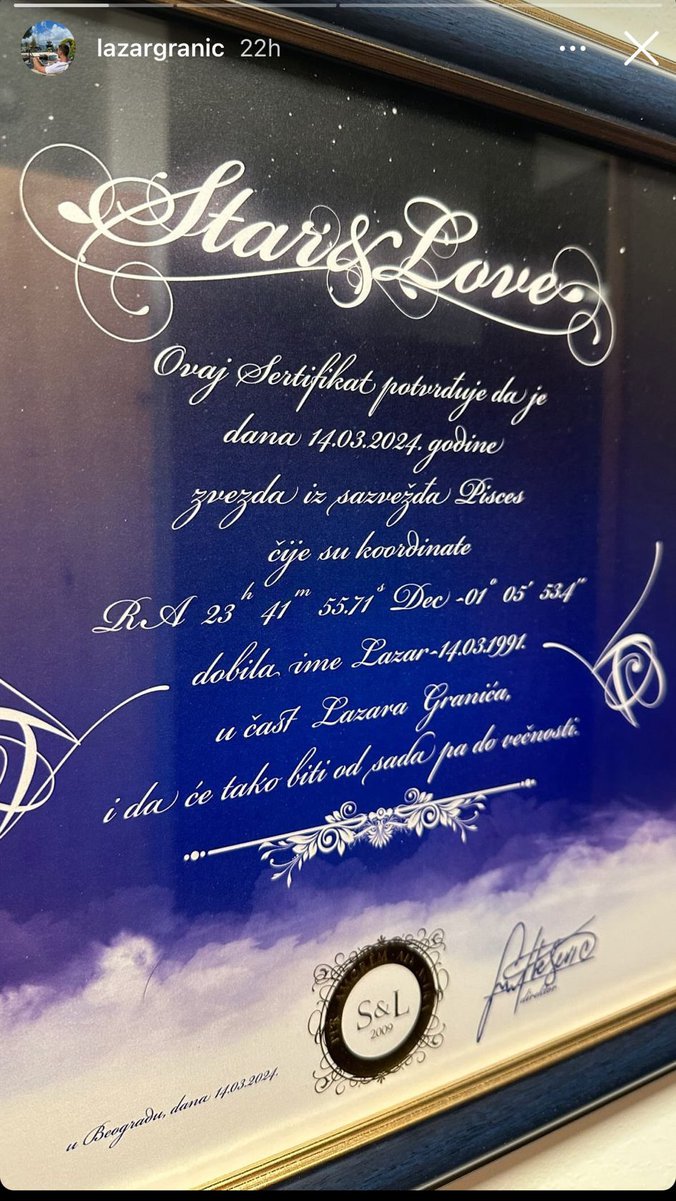 lazargranic 22h
Star&Love
Ovaj Sertifikat potvrđuje da je
dana 14.03.2024. godine
zvezda iz sazvežđa Pisces
čije su koordinate
RA 23h 41m 55.71s Dec -01° 05' 53.4"
dobila ime Lazar-14.03.1991.
u čast Lazara Granića,
i da će tako biti od sada pa do večnosti.
S&L
2009
direktor
u Beogradu, dana 14.03.2024.